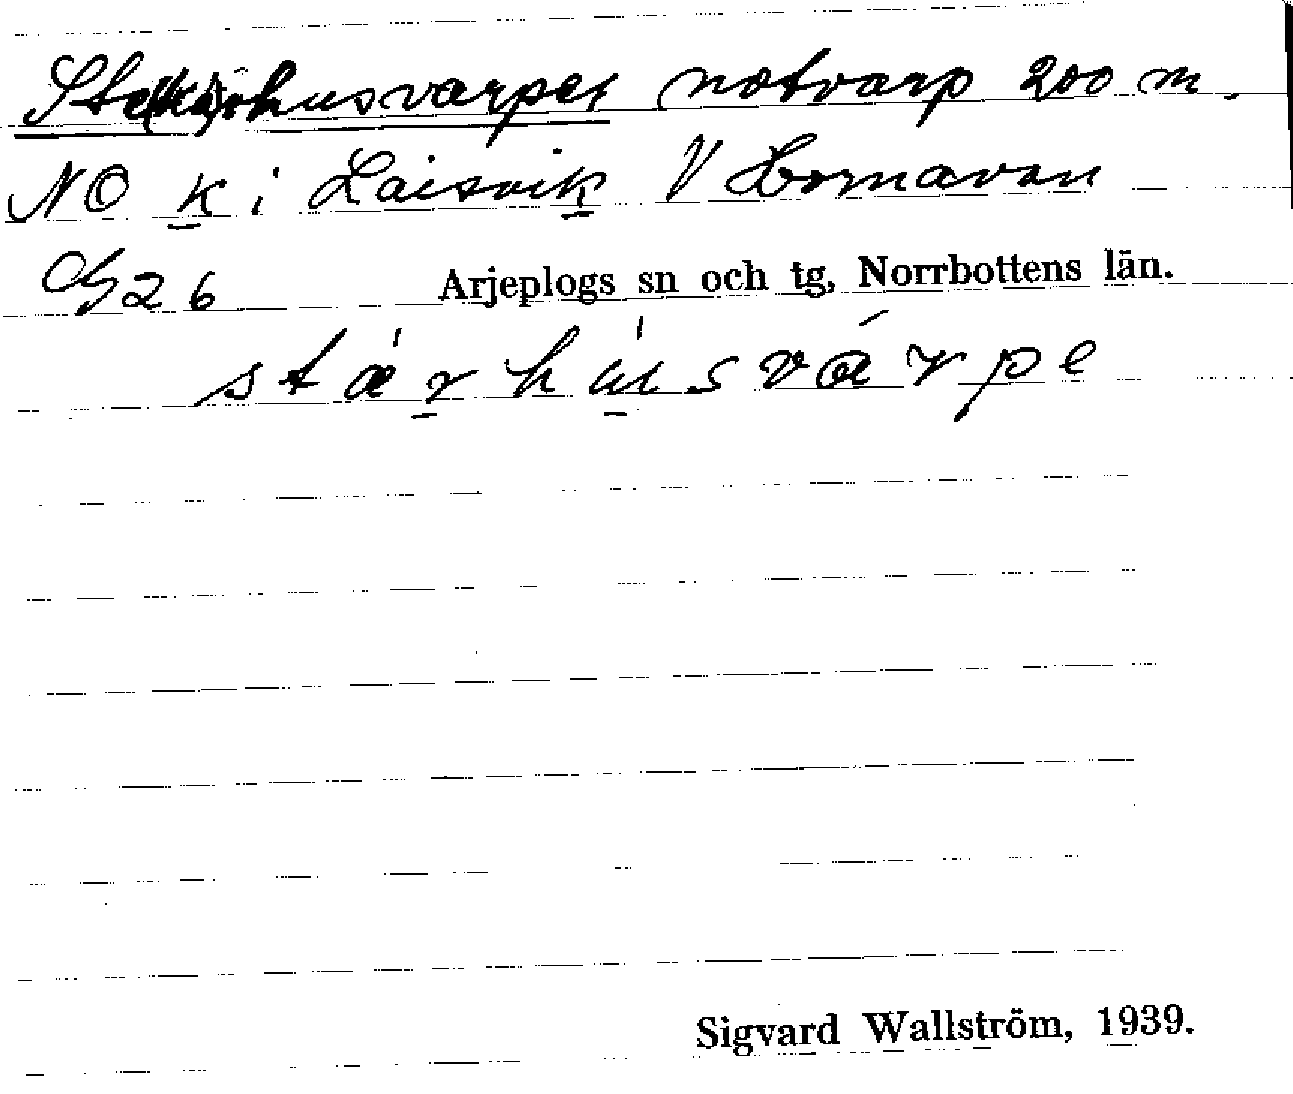 notvarp 200 m.
NO k i Laisvik V Hornavan
26 Arjeplogs sn och tg, Norrbottens län.
stárhúsvárpe
Sigvard Wallström, 1939.